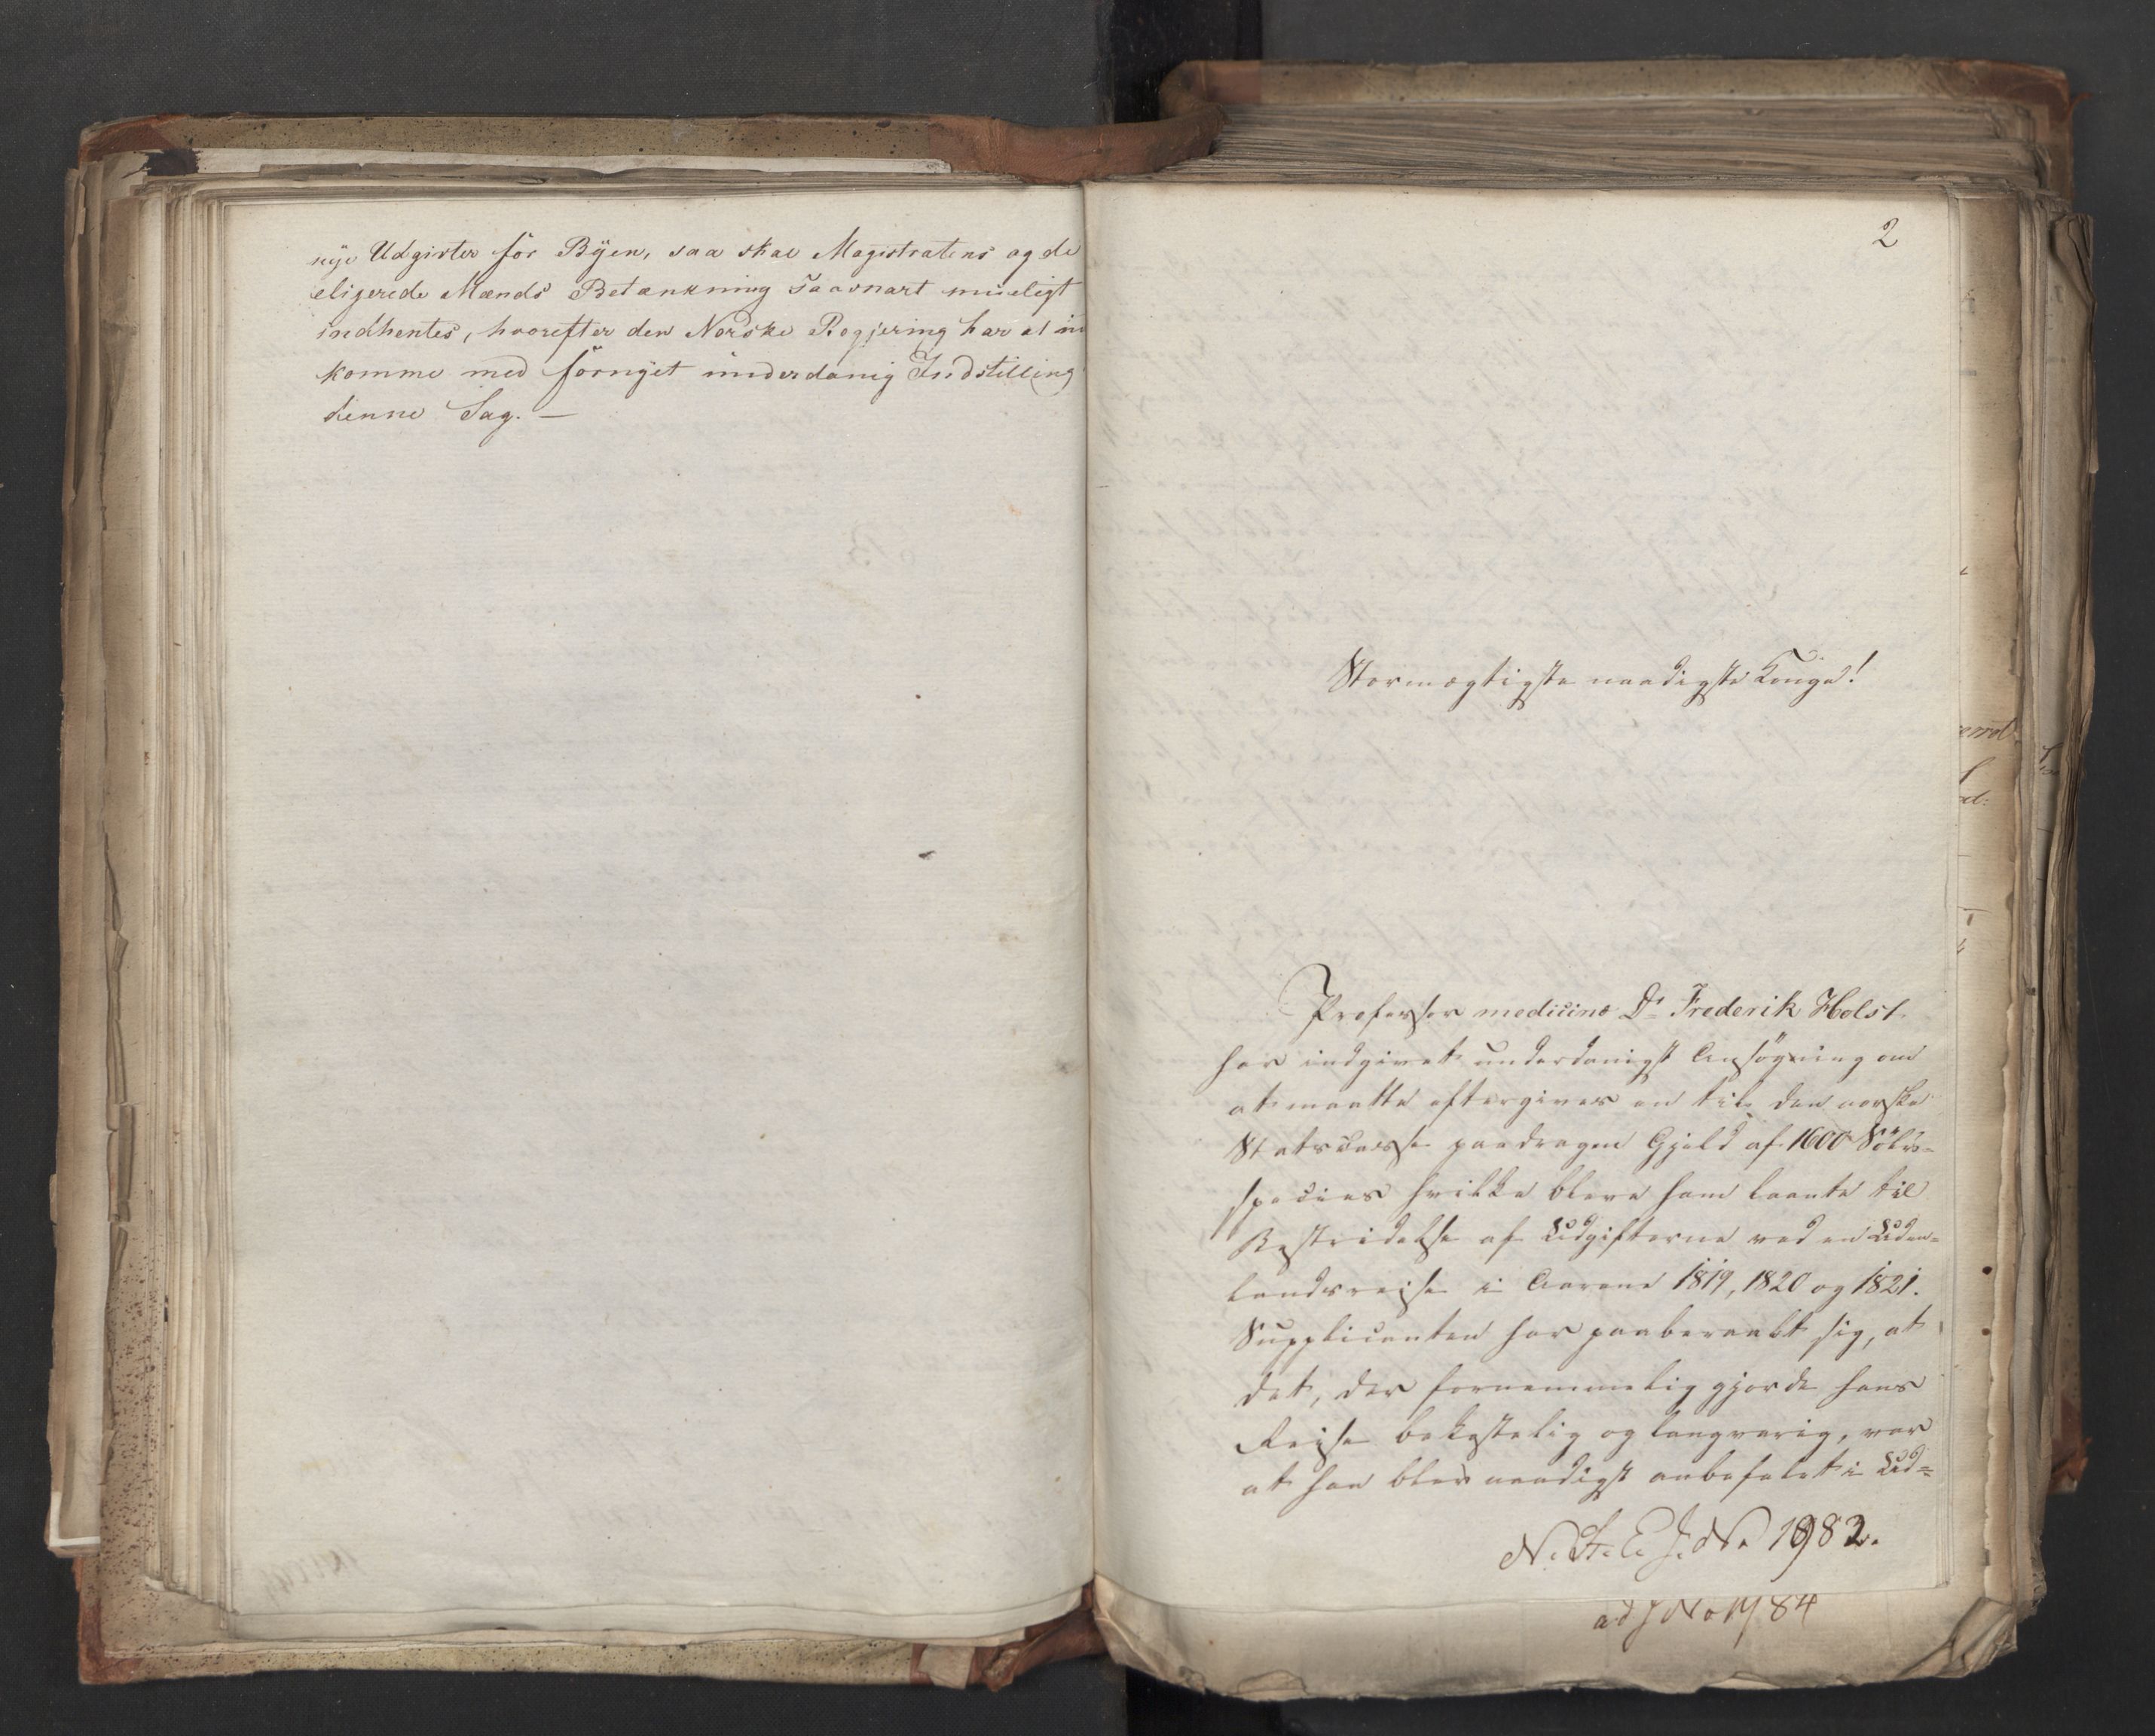 nye Udgivter for Byen, saa skal Magistratens og de
eligerede Mænds Betænkning saasnart mueligt
indhentes, hvorefter den Norske Regjering har at in
komme med fornyet underdanig Indstilling
denne Sag. —
2
Stormægtigste naadigste Konge!
Professor medicinæ Dr Frederik Holst
har indgivet underdanigst Ansøgning om
at maatte eftergives en til den norske
Statscasse paadragen Gjeld af 1600 Sølv-
species hvilke bleve ham laante til
Bestridelse af Udgifterne ved en Uden-
landsreise i Aarene 1819, 1820 og 1821.
Supplicanten har paaberaabt sig, at
det, der fornemmelig gjorde hans
Reise bekostelig og langvarig, var
at han blev naadigst anbefalet i Ud-
N. St. E. J. No 1982.
ad J No 1984